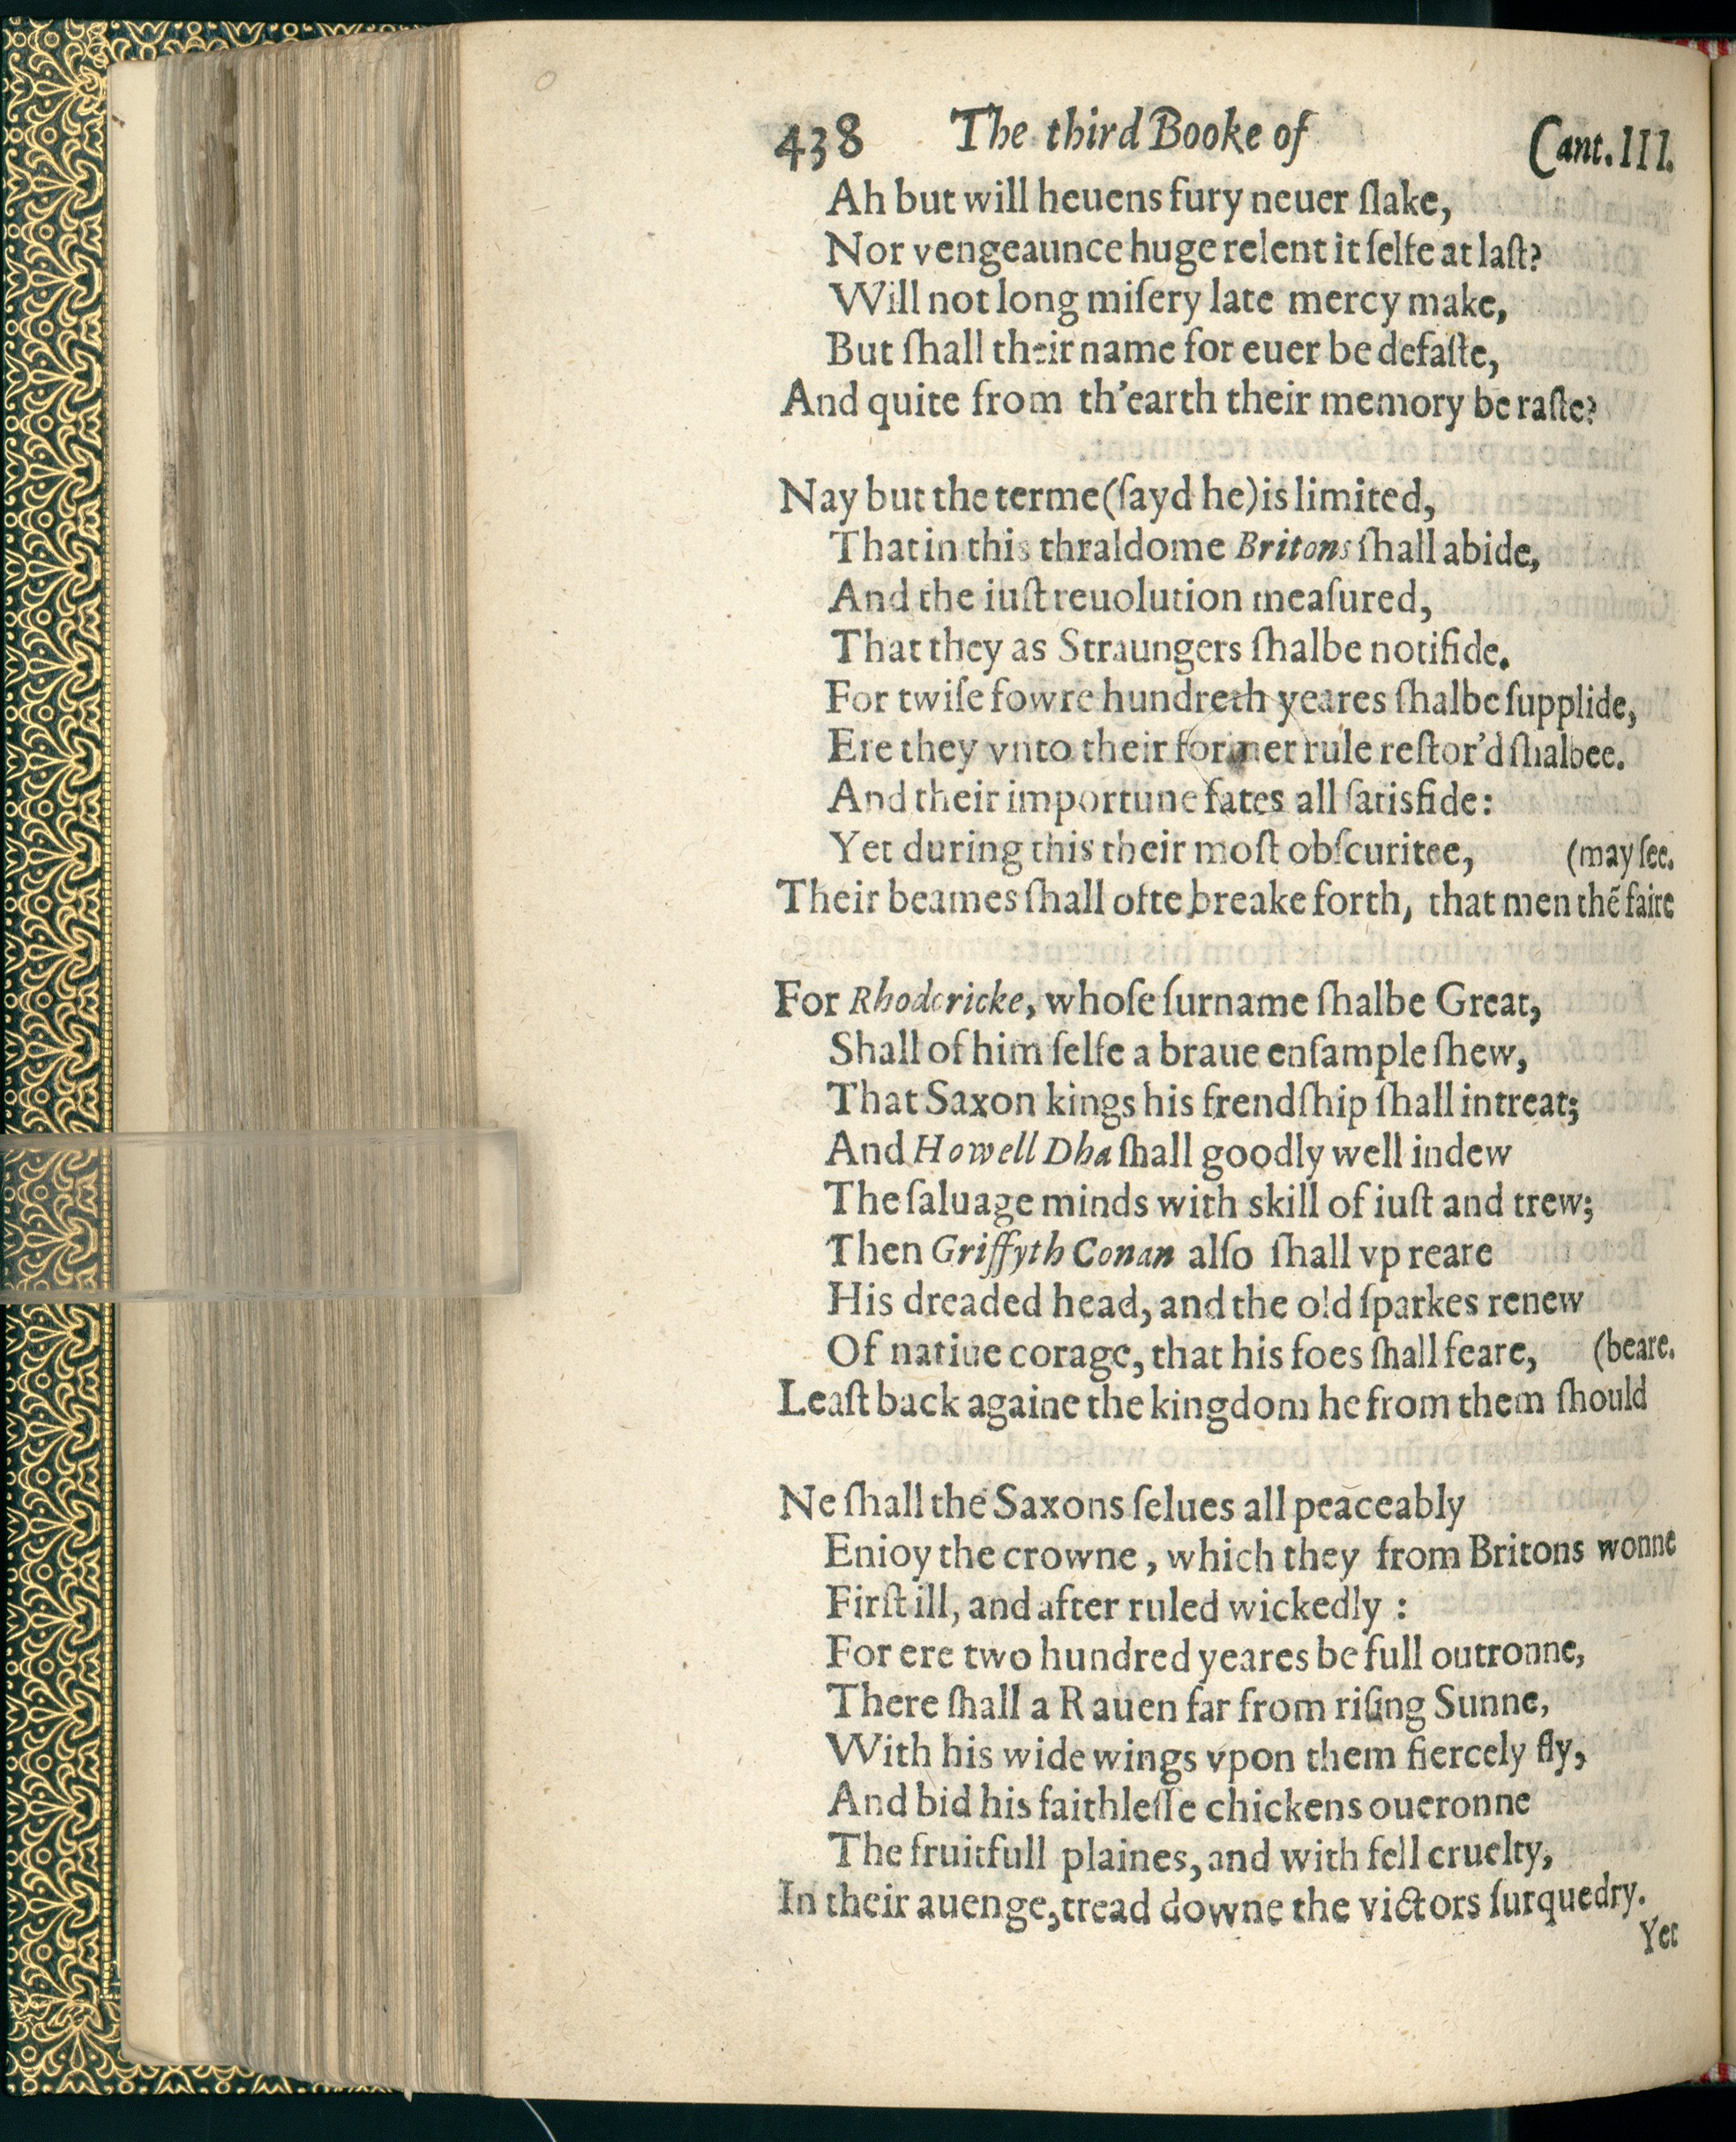 438 The third Booke of Cant. III.
Ah but will heuens fury neuer ſlake,
Nor vengeaunce huge relent it ſelfe at laſt?
Will not long miſery late mercy make,
But ſhall their name for euer be defaſte,
And quite from th'earth their memory be raſte?
Nay but the terme (ſayd he) is limited,
That in this thraldome Britons ſhall abide,
And the iuſt reuolution meaſured,
That they as Straungers ſhalbe notifide.
For twiſe fowre hundreth yeares ſhalbe ſupplide,
Ere they vnto their former rule reſtor'd ſhalbee.
And their importune fates all ſatisfide:
Yet during this their moſt obſcuritee, (may ſee.
Their beames ſhall ofte breake forth, that men thē faire
For Rhodericke, whoſe ſurname ſhalbe Great,
Shall of him ſelfe a braue enſample ſhew,
That Saxon kings his frendſhip ſhall intreat;
And Howell Dha ſhall goodly well indew
The ſaluage minds with skill of iuſt and trew;
Then Griffyth Conan alſo ſhall vp reare
His dreaded head, and the old ſparkes renew
Of natiue corage, that his foes ſhall feare, (beare.
Leaſt back againe the kingdom he from them ſhould
Ne ſhall the Saxons ſelues all peaceably
Enioy the crowne, which they from Britons wonne
Firſt ill, and after ruled wickedly:
For ere two hundred yeares be full outronne,
There ſhall a Rauen far from riſing Sunne,
With his wide wings vpon them fiercely fly,
And bid his faithleſſe chickens oueronne
The fruitfull plaines, and with fell cruelty,
In their auenge, tread downe the victors ſurquedry.
Yet